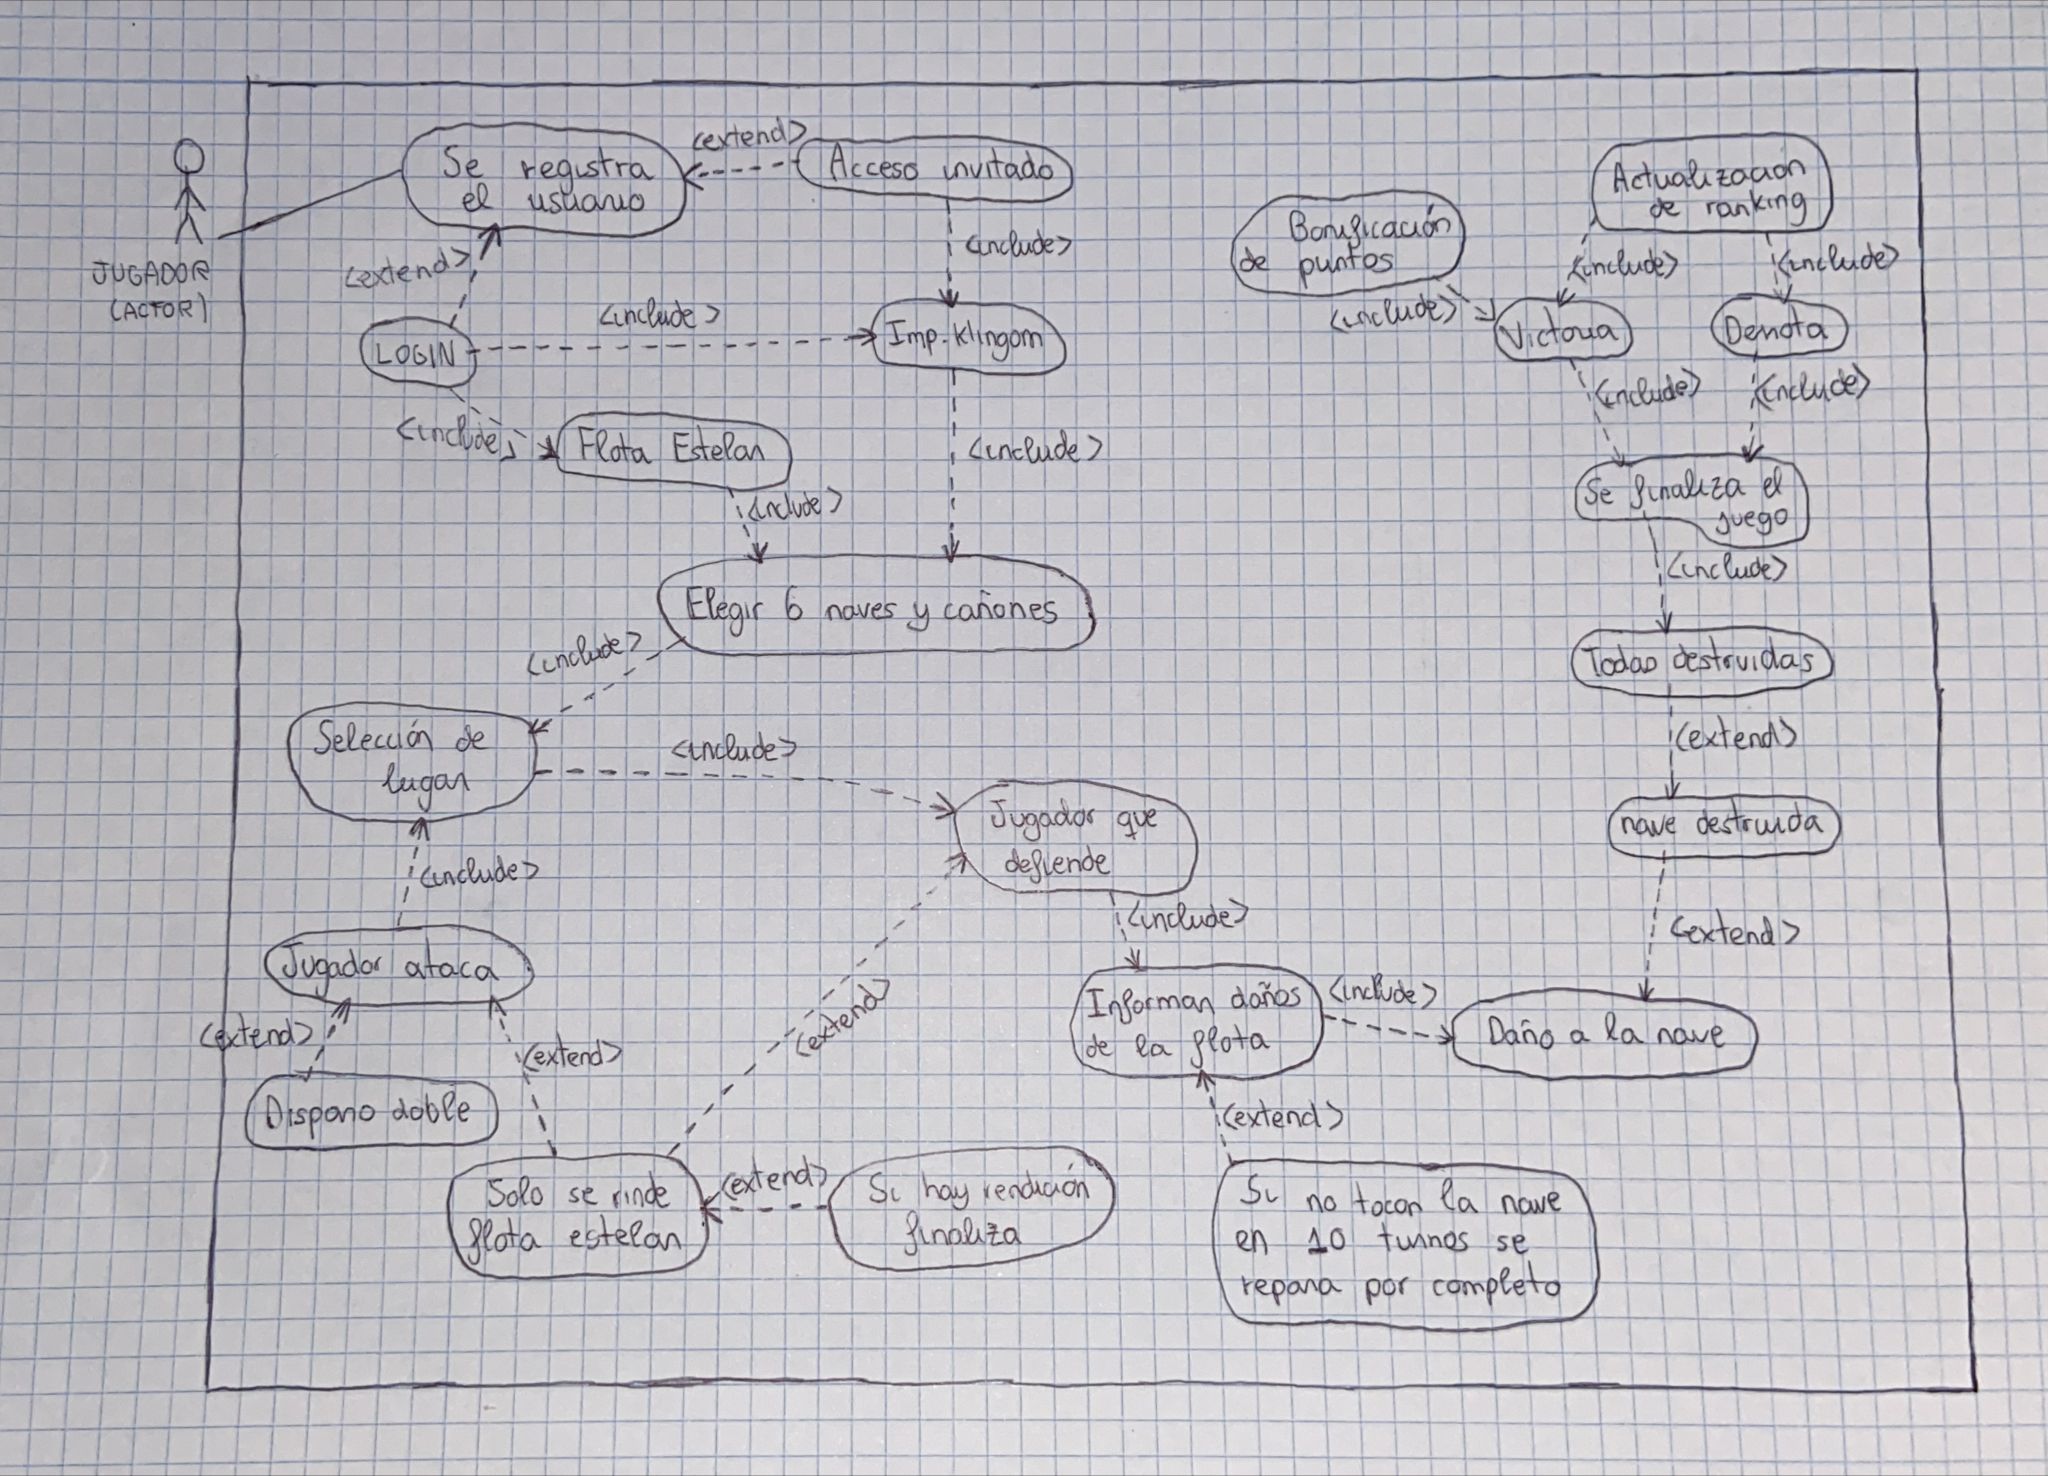 JUGADOR
(ACTOR)
Se registra
el usuario
<extend>
Acceso invitado
<extend>
<include>
LOGIN
<include>
Imp. Klingom
<include>
Flota Estelar
<include>
<include>
Elegir 6 naves y cañones
<include>
Selección de
lugar
<include>
<include>
Jugador ataca
<extend>
Disparo doble
<extend>
Solo se rinde
flota estelar
<extend>
<extend>
Si hay rendición
finaliza
Jugador que
defiende
<include>
Informan daños
de la flota
<include>
Daño a la nave
<extend>
Si no tocan la nave
en 10 turnos se
repara por completo
Actualización
de ranking
Bonificación
de puntos
<include>
<include>
<include>
Victoria
Derrota
<include>
<include>
Se finaliza el
juego
<include>
Todas destruidas
<extend>
nave destruida
<extend>